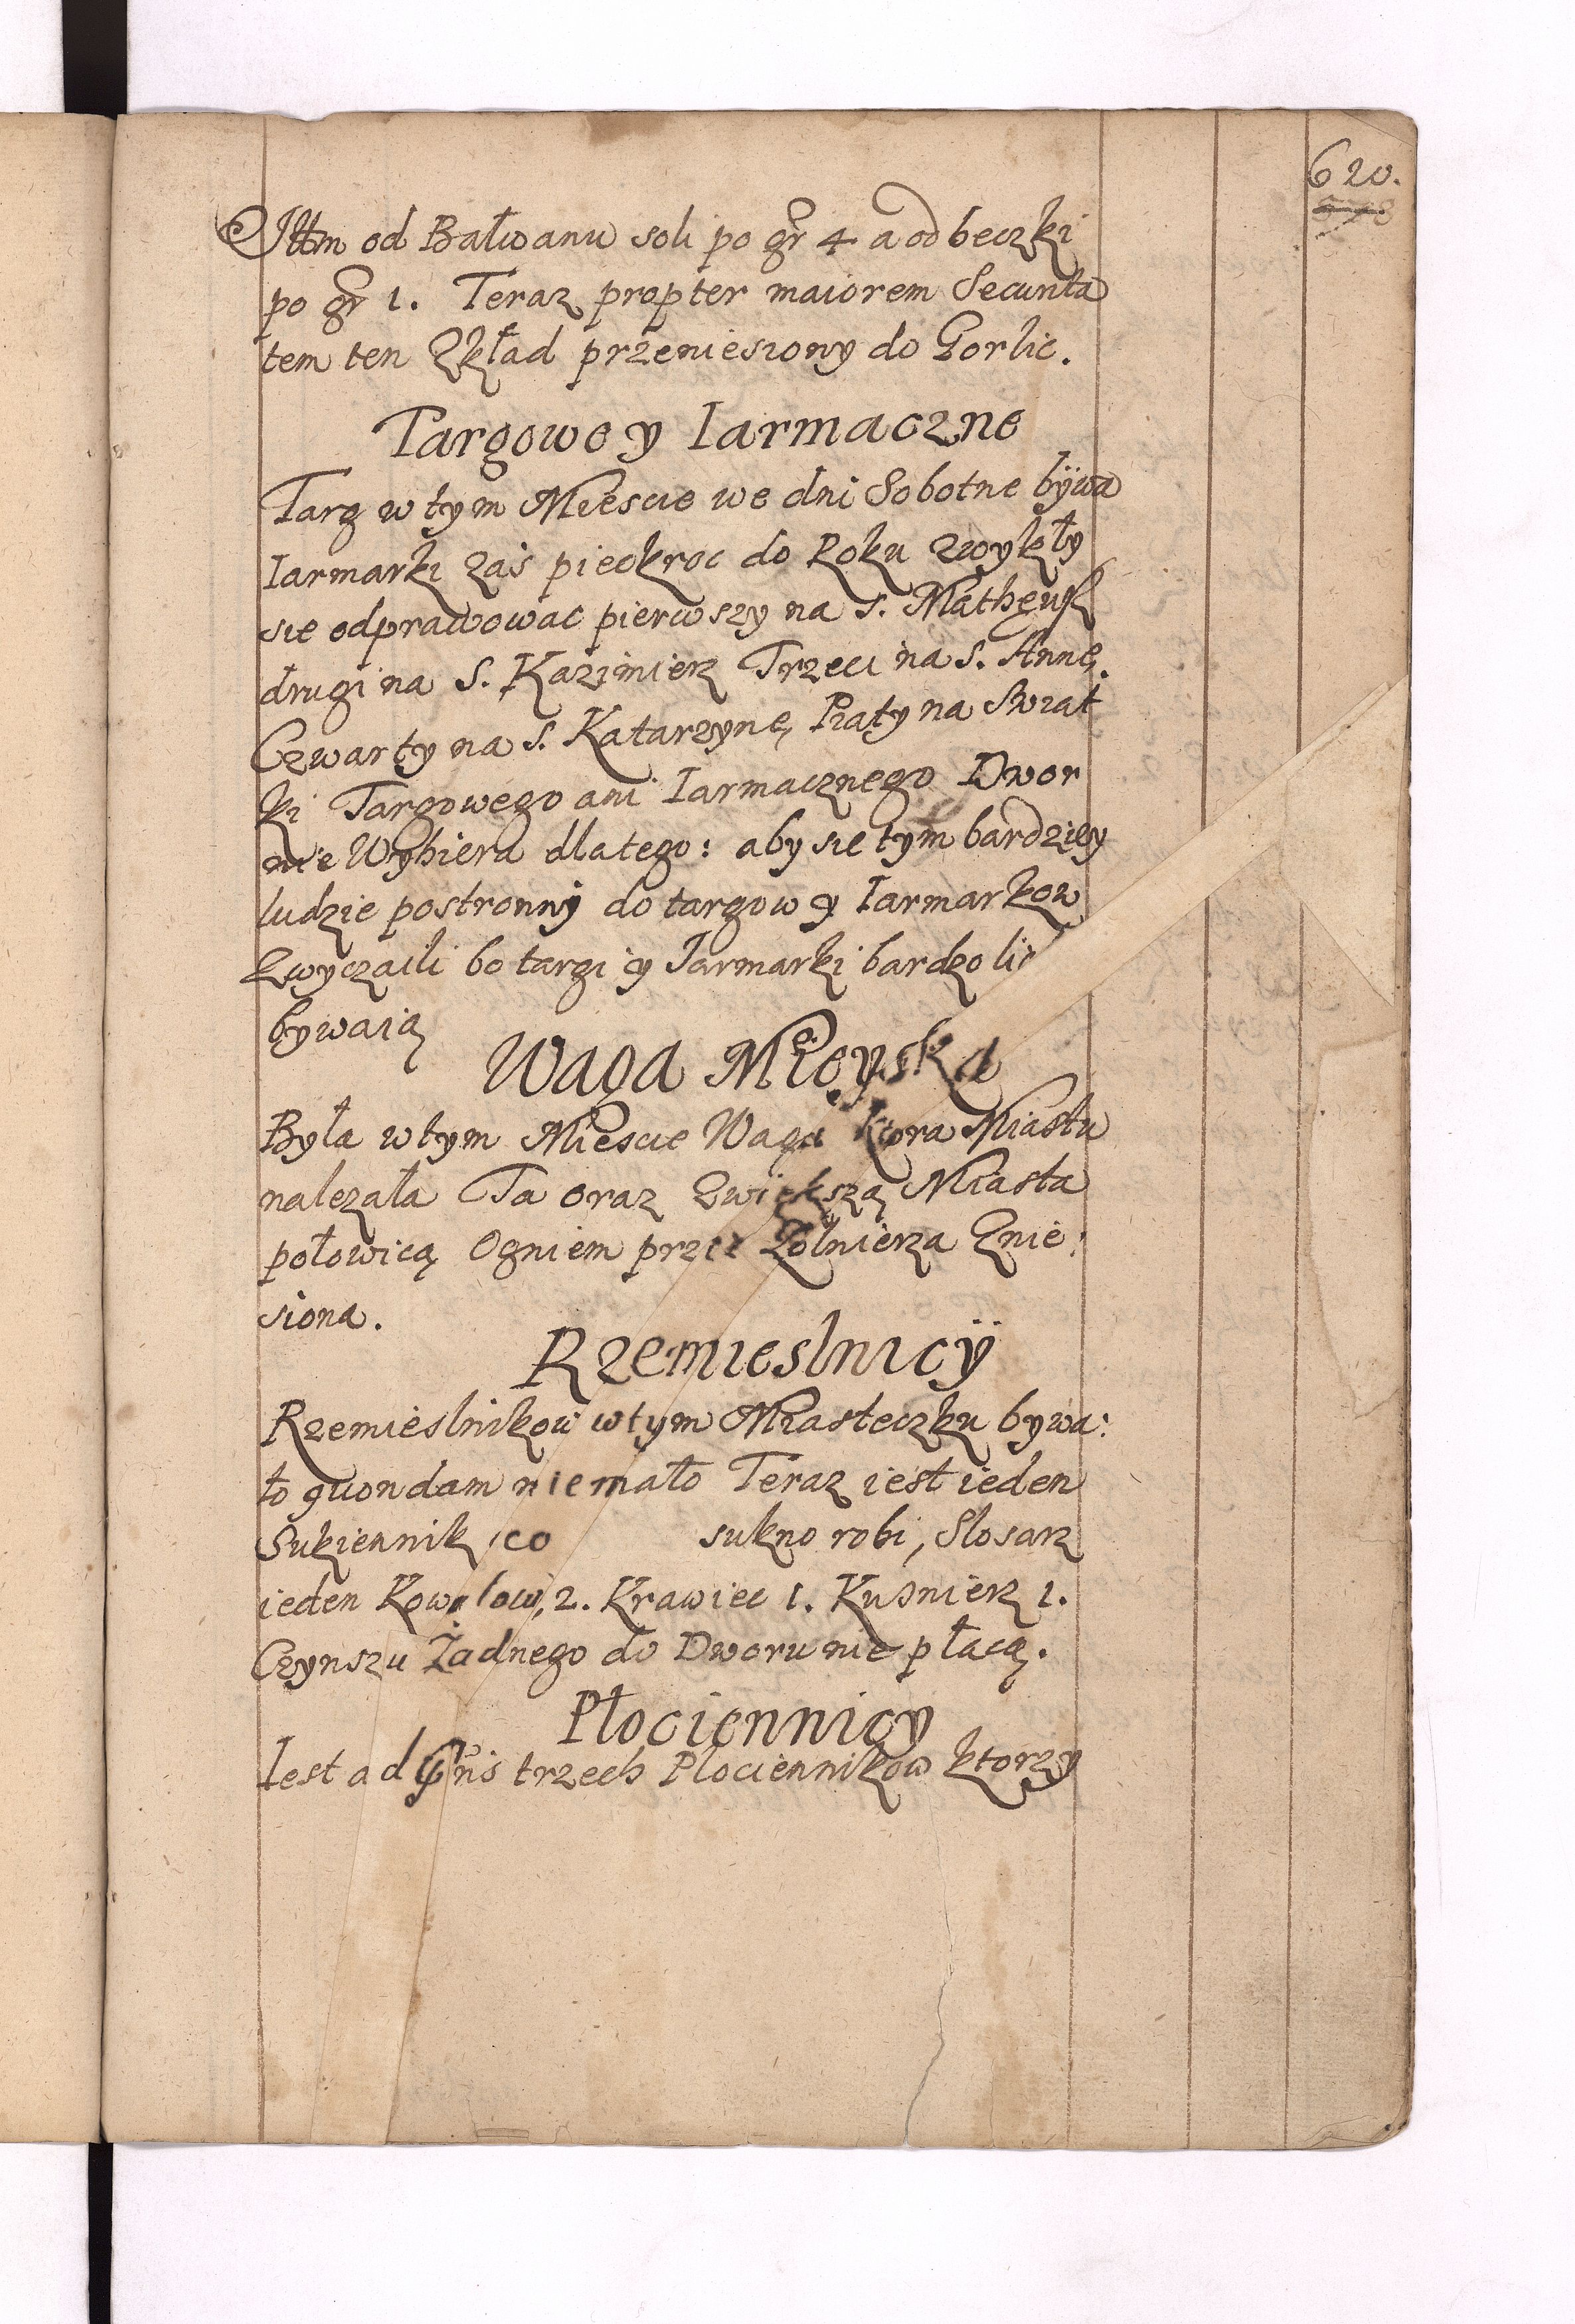 620.
Ittm od Bałwanu soli po gr 4 a od beczki
po gr 1. Teraz propter maiorem Securita
tem ten Zkład przeniesiony do Gorlic.
Targowe y Iarmaczne
Targ w tym Miescie we dni Sobotne bÿwa
Iarmarki zaś pieckroc do Roku zwykły
sie odprawowac pierwszy na s. Matheusz
drugi na S. Kazimierz Trzeci na s. Annę.
Czwarty na s. Katarzynę, Piąty na Swiąt
ki Targowego ani Iarmacznego Dwor
nie Wybiera dlatego: aby sie tym bardziey
ludzie postronny do targow y Iarmarkow
Zwyczaili bo targi y Jarmarki bardzo
bywaią
Waga Mieyska
Była w tym Miescie Waga ktora Miastu
nalezała Ta oraz Zwiększą Miasta
połowicą Ogniem przez Zołnierza Znie:
siona.
Rzemieslnicÿ
Rzemieslnikow w tym Miasteczku bywa:
ło quondam niemało Teraz iest ieden
Sukiennik co sukno robi, Slosarz
ieden Kowalow 2. Krawiec 1. Kusnierz 1.
Czynszu Żadnego do Dworu nie płacą.
Płociennicy
Iest ad trzech Płociennikow ktorzy